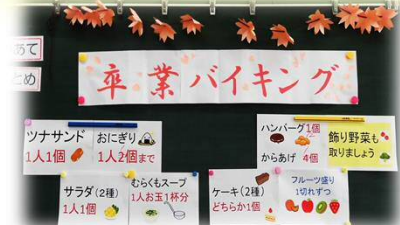 あて
とめ
卒業バイキング
ツナサンド
1人1個
おにぎり
1人2個まで
ハンバーグ1個
からあげ 4個
飾り野菜も
取りましょう
サラダ(2種)
1人1個
むらくもスープ
1人お玉1杯分
ケーキ(2種)
どちらか1個
フルーツ盛り
1切れずつ